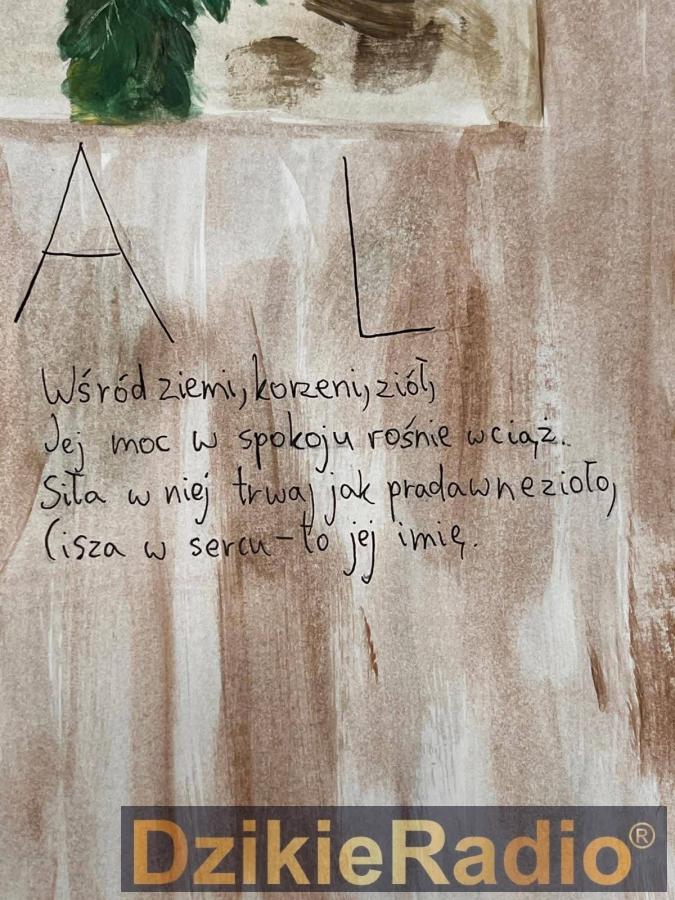 A L
Wśród ziemi, korzeni, ziół,
Jej moc w spokoju rośnie wciąż.
Siła w niej trwa, jak pradawne zioło,
Cisza w sercu – to jej imię.
DzikieRadio®